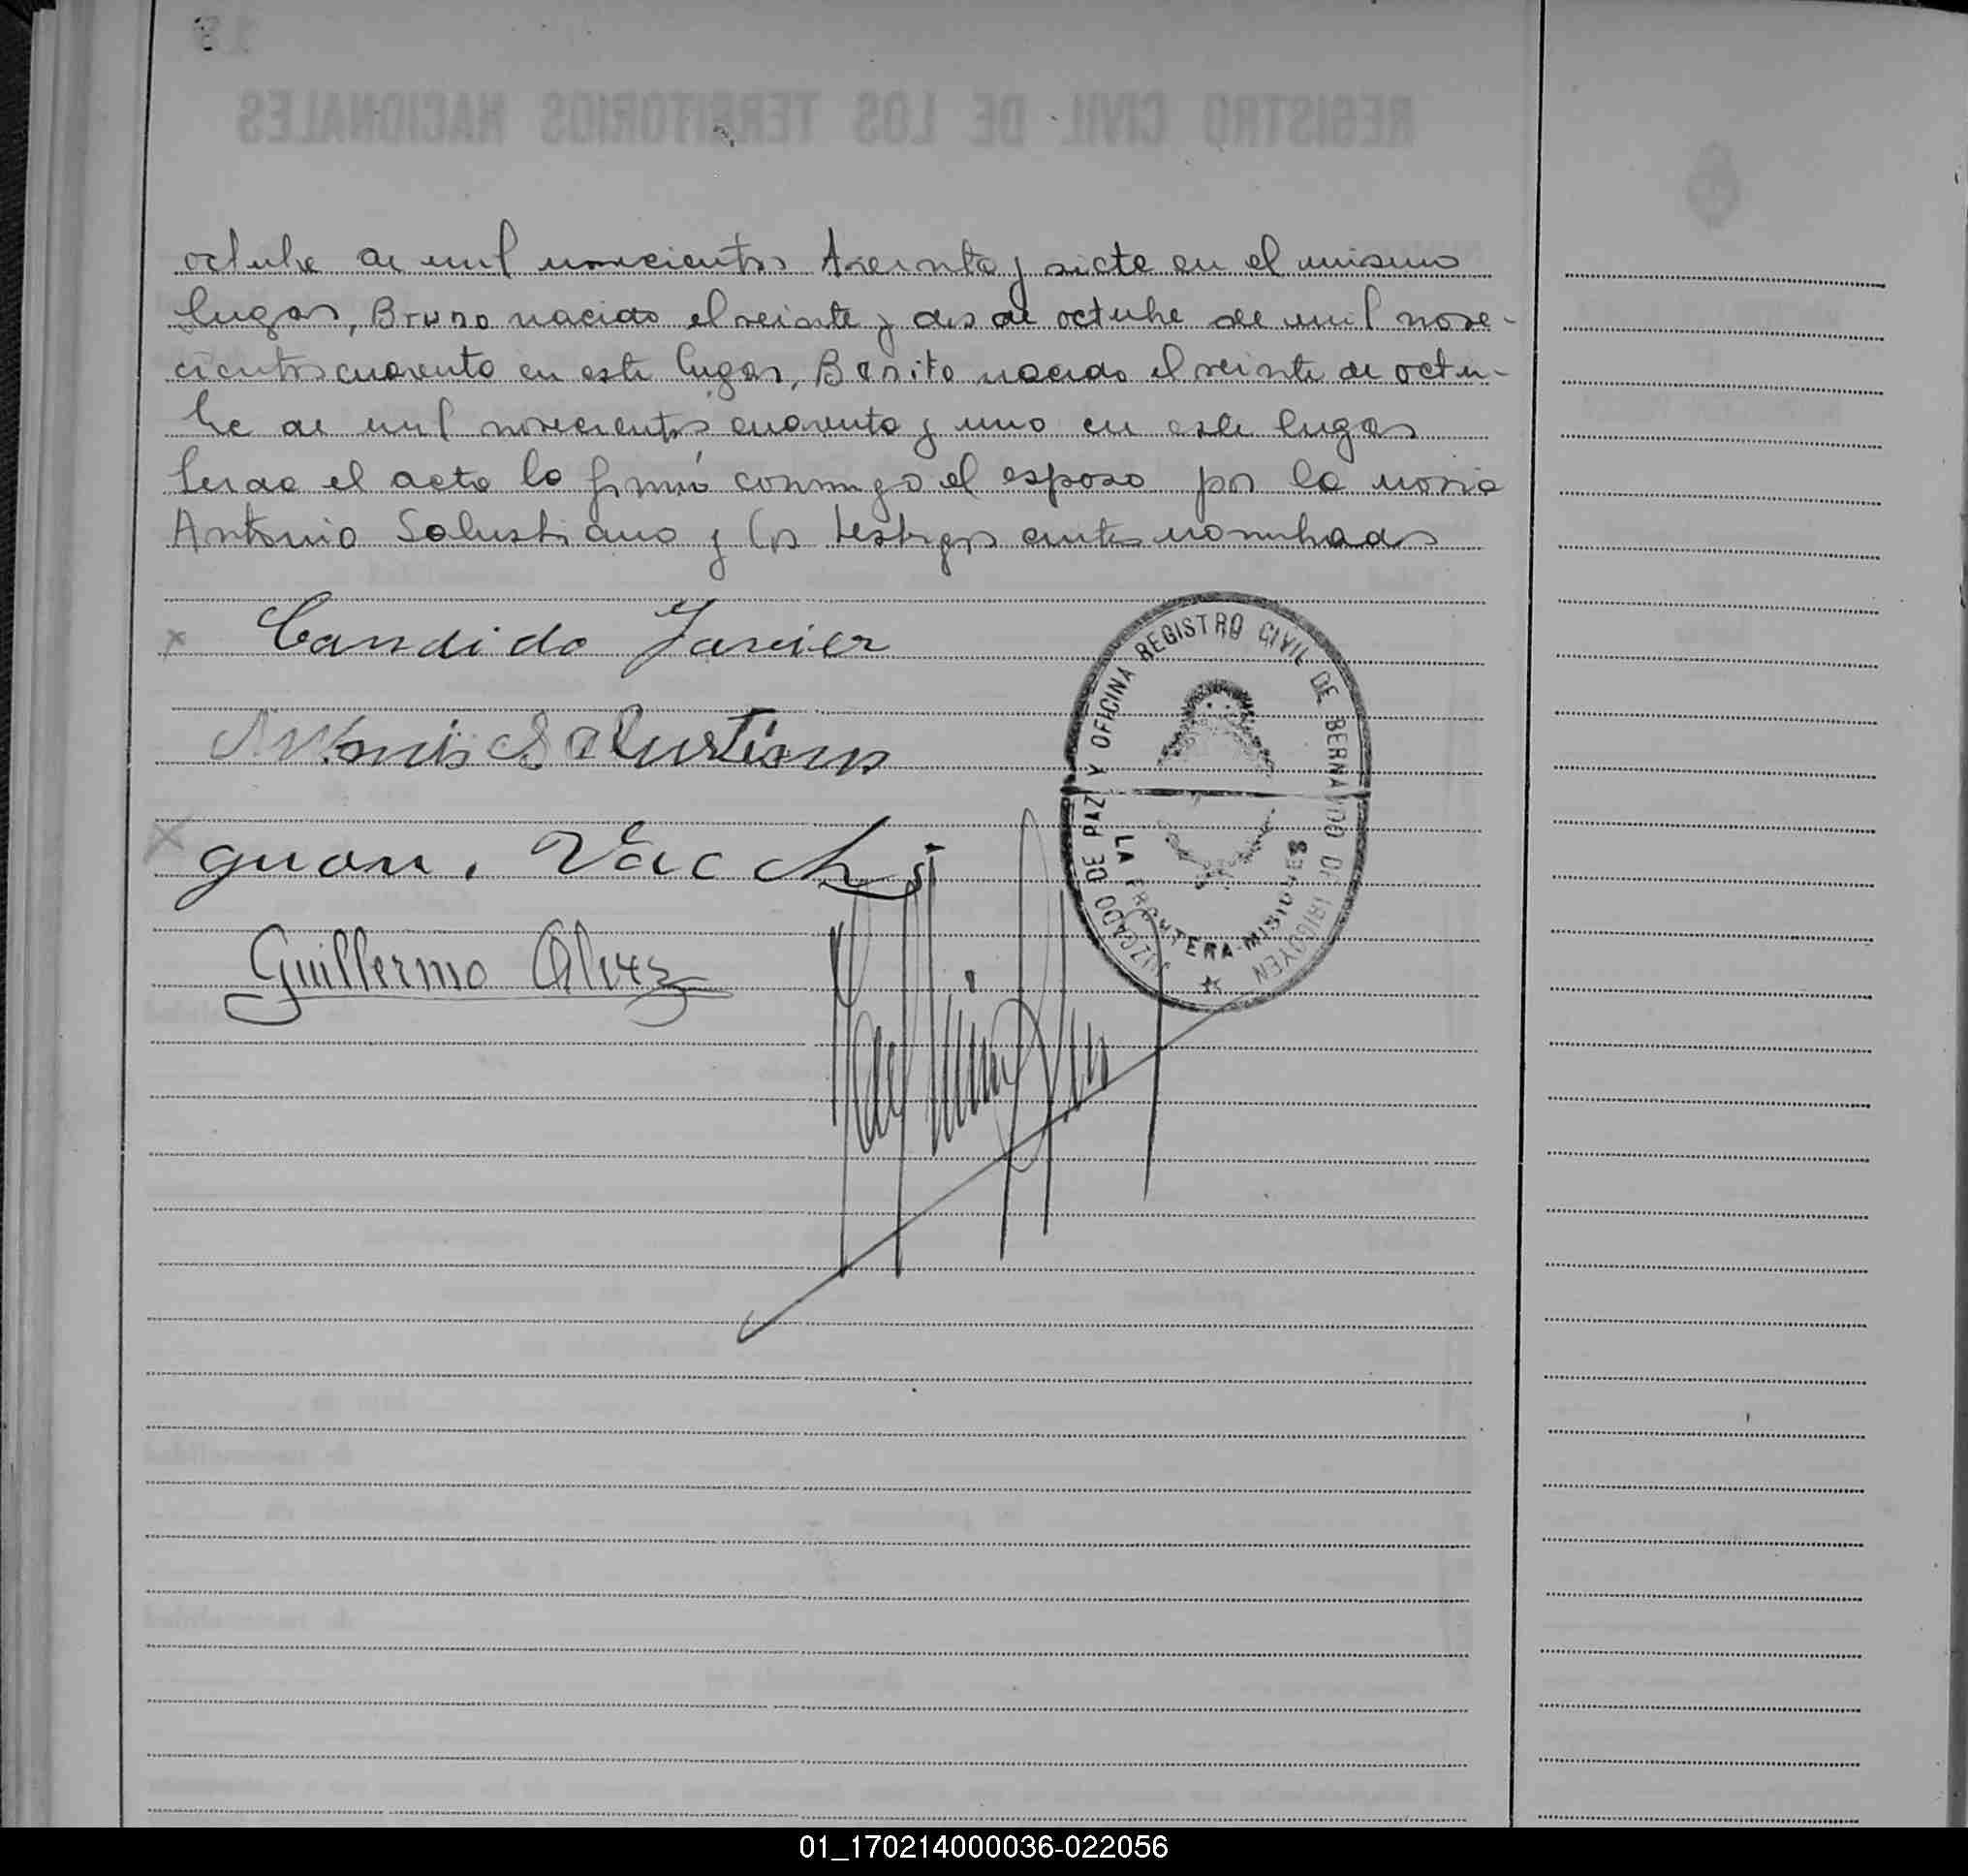 octubre de mil novecientos treinta y siete en el mismo
lugar, Bruno nacido el veinte y dos de octubre de mil nove-
cientos cuarenta en este lugar, Benito nacido el veinte de octu-
bre de mil novecientos cuarenta y uno en este lugar
Leida el acta la firmó conmigo el esposo por la novia
Antonio Salustiano y los testigos antes nombrados
Candido Javier
Antonio Salustiano
guan. Vacchi
Guillermo Alvez
JUZGADO DE PAZ Y OFICINA REGISTRO CIVIL DE BERNARDO DE IRIGOYEN
LA FRONTERA-MISIONES
REGISTRO CIVIL DE LOS TERRITORIOS NACIONALES
01_170214000036-022056